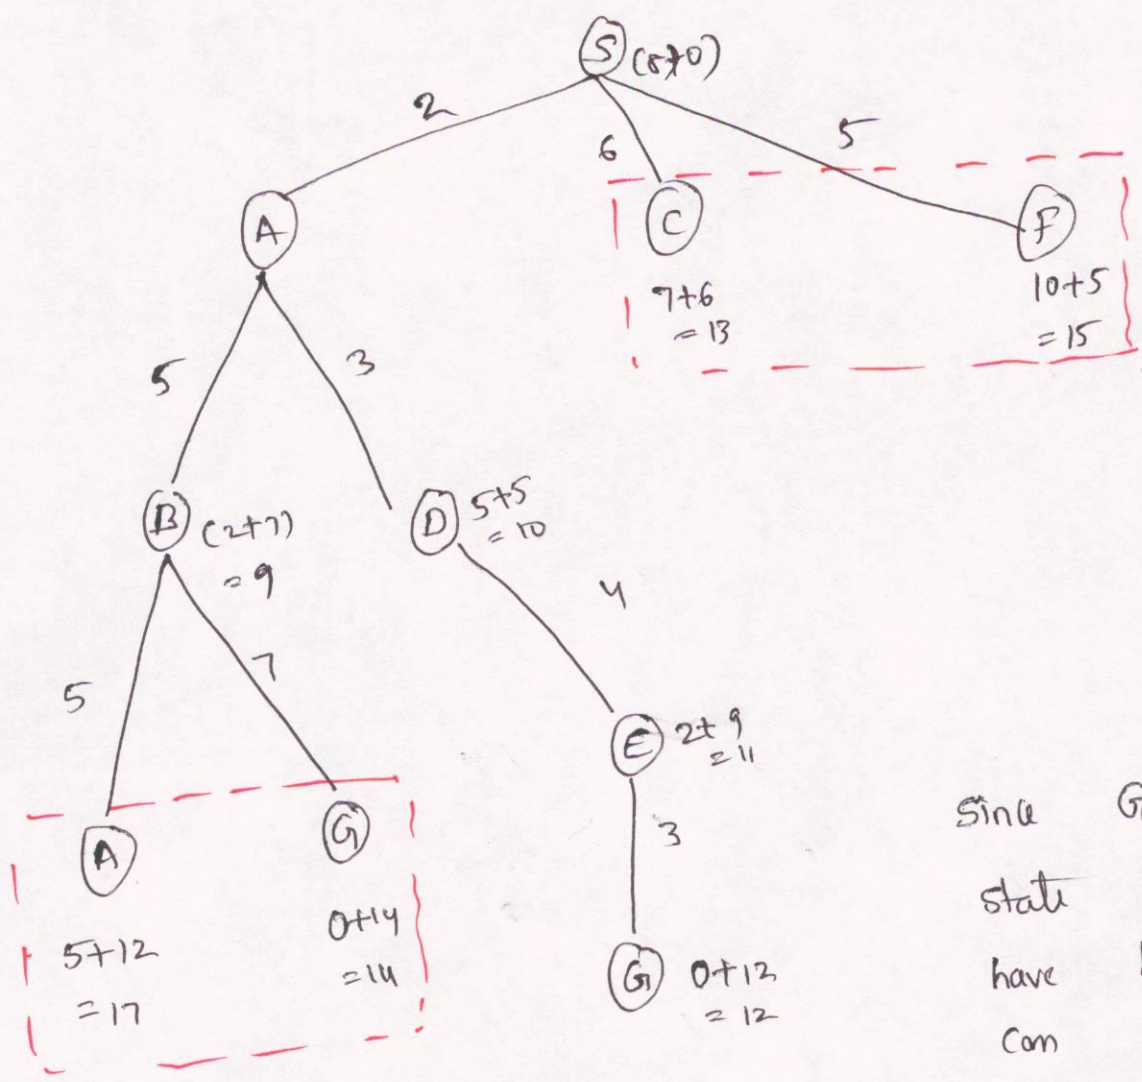 S (8+0)
2
6
5
A
C
F
7+6
= 13
10+5
= 15
5
3
B (2+7)
= 9
D 5+5
= 10
4
5
7
E 2+9
= 11
3
A
G
5+12
= 17
0+14
= 14
G 0+12
= 12
Since G
state
have
Can